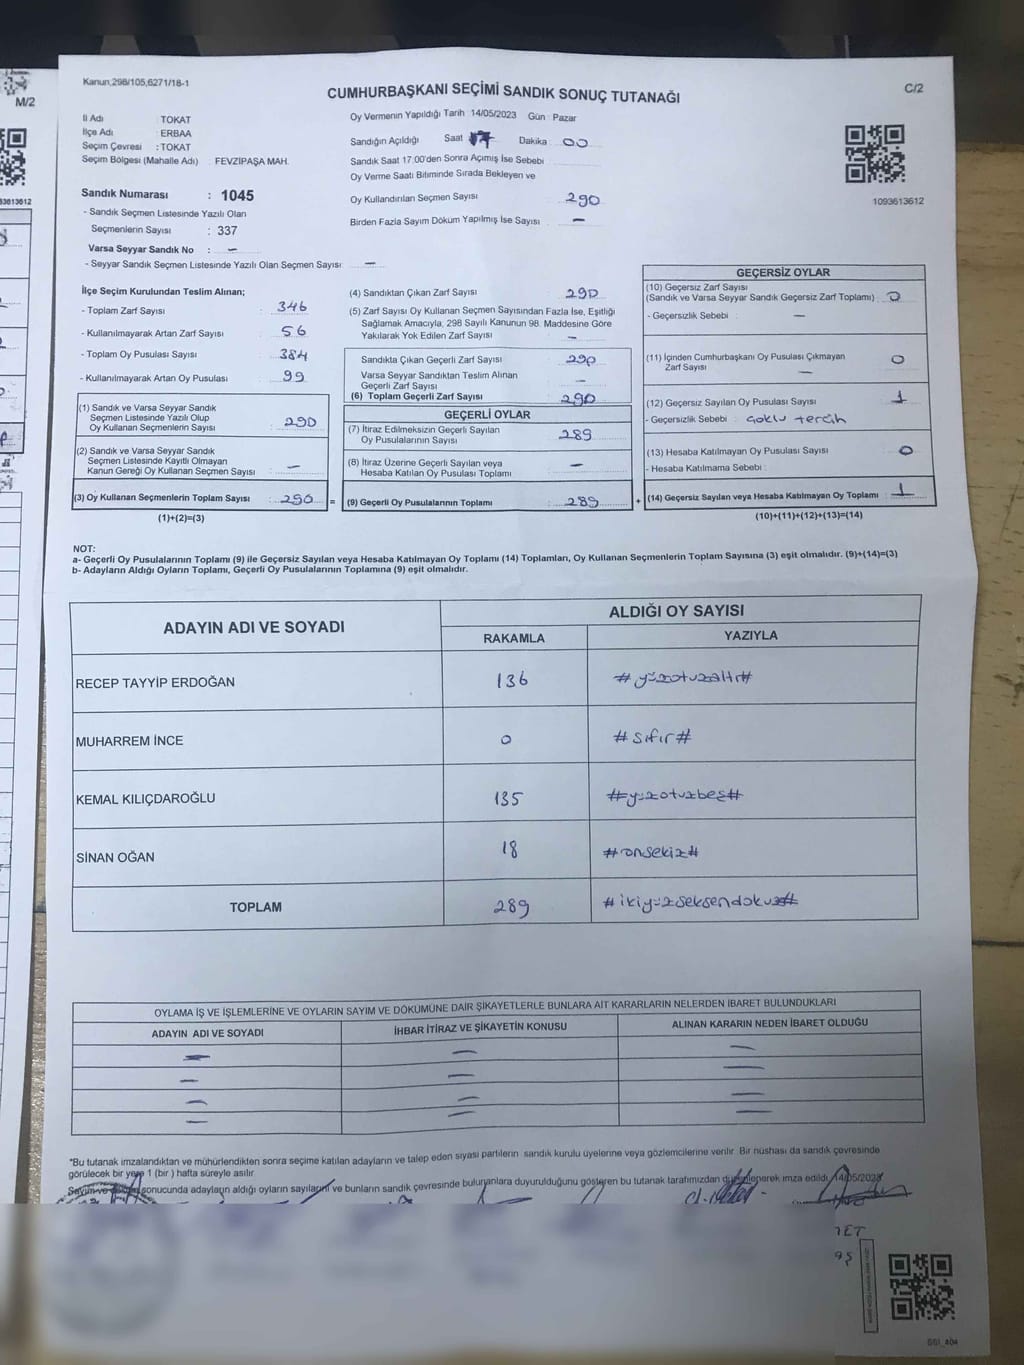 Kanun;298/105,6271/18-1
CUMHURBAŞKANI SEÇİMİ SANDIK SONUÇ TUTANAĞI
C/2
M/2
İl Adı : TOKAT
İlçe Adı : ERBAA
Seçim Çevresi : TOKAT
Seçim Bölgesi (Mahalle Adı) : FEVZİPAŞA MAH.
Sandık Numarası : 1045
- Sandık Seçmen Listesinde Yazılı Olan
Seçmenlerin Sayısı : 337
Varsa Seyyar Sandık No : -
- Seyyar Sandık Seçmen Listesinde Yazılı Olan Seçmen Sayısı: -
Oy Vermenin Yapıldığı Tarih 14/05/2023 Gün : Pazar
Sandığın Açıldığı Saat 17 Dakika : 00
Sandık Saat 17.00'den Sonra Açımış İse Sebebi
Oy Verme Saati Bitiminde Sırada Bekleyen ve
Oy Kullandırılan Seçmen Sayısı : 290
Birden Fazla Sayım Döküm Yapılmış İse Sayısı : -
1093613612
İlçe Seçim Kurulundan Teslim Alınan;
- Toplam Zarf Sayısı : 346
- Kullanılmayarak Artan Zarf Sayısı : 56
- Toplam Oy Pusulası Sayısı : 384
- Kullanılmayarak Artan Oy Pusulası : 99
(1) Sandık ve Varsa Seyyar Sandık
Seçmen Listesinde Yazılı Olup
Oy Kullanan Seçmenlerin Sayısı : 290
(2) Sandık ve Varsa Seyyar Sandık
Seçmen Listesinde Kayıtlı Olmayan
Kanun Gereği Oy Kullanan Seçmen Sayısı : -
(3) Oy Kullanan Seçmenlerin Toplam Sayısı : 290 =
(1)+(2)=(3)
(4) Sandıktan Çıkan Zarf Sayısı : 290
(5) Zarf Sayısı Oy Kullanan Seçmen Sayısından Fazla İse, Eşitliği
Sağlamak Amacıyla, 298 Sayılı Kanunun 98. Maddesine Göre
Yakılarak Yok Edilen Zarf Sayısı : -
Sandıkta Çıkan Geçerli Zarf Sayısı : 290
Varsa Seyyar Sandıktan Teslim Alınan
Geçerli Zarf Sayısı : -
(6) Toplam Geçerli Zarf Sayısı : 290
GEÇERLİ OYLAR
(7) İtiraz Edilmeksizin Geçerli Sayılan
Oy Pusulalarının Sayısı : 289
(8) İtiraz Üzerine Geçerli Sayılan veya
Hesaba Katılan Oy Pusulası Toplamı : -
(9) Geçerli Oy Pusulalarının Toplamı : 289 +
GEÇERSİZ OYLAR
(10) Geçersiz Zarf Sayısı
(Sandık ve Varsa Seyyar Sandık Geçersiz Zarf Toplamı) : 0
- Geçersizlik Sebebi : -
(11) İçinden Cumhurbaşkanı Oy Pusulası Çıkmayan
Zarf Sayısı : 0
(12) Geçersiz Sayılan Oy Pusulası Sayısı : 1
- Geçersizlik Sebebi : çoklu tercih
(13) Hesaba Katılmayan Oy Pusulası Sayısı : 0
- Hesaba Katılmama Sebebi :
(14) Geçersiz Sayılan veya Hesaba Katılmayan Oy Toplamı : 1
(10)+(11)+(12)+(13)=(14)
NOT:
a- Geçerli Oy Pusulalarının Toplamı (9) ile Geçersiz Sayılan veya Hesaba Katılmayan Oy Toplamı (14) Toplamları, Oy Kullanan Seçmenlerin Toplam Sayısına (3) eşit olmalıdır. (9)+(14)=(3)
b- Adayların Aldığı Oyların Toplamı, Geçerli Oy Pusulalarının Toplamına (9) eşit olmalıdır.
ADAYIN ADI VE SOYADI
ALDIĞI OY SAYISI
RAKAMLA YAZIYLA
RECEP TAYYİP ERDOĞAN 136 #yüzotuzaltı#
MUHARREM İNCE 0 #sıfır#
KEMAL KILIÇDAROĞLU 135 #yüzotuzbeş#
SİNAN OĞAN 18 #onsekiz#
TOPLAM 289 #ikiyüzseksendokuz#
OYLAMA İŞ VE İŞLEMLERİNE VE OYLARIN SAYIM VE DÖKÜMÜNE DAİR ŞİKAYETLERLE BUNLARA AİT KARARLARIN NELERDEN İBARET BULUNDUKLARI
ADAYIN ADI VE SOYADI İHBAR İTİRAZ VE ŞİKAYETİN KONUSU ALINAN KARARIN NEDEN İBARET OLDUĞU
- - -
- - -
- - -
- - -
*Bu tutanak imzalandıktan ve mühürlendikten sonra seçime katılan adayların ve talep eden siyasi partilerin sandık kurulu üyelerine veya gözlemcilerine verilir. Bir nüshası da sandık çevresinde
görülecek bir yere 1 (bir ) hafta süreyle asılır.
sonucunda adayların aldığı oyların sayılarını ve bunların sandık çevresinde bulunanlara duyurulduğunu gösteren bu tutanak tarafımızdan düzenlenerek imza edildi. 14/05/2023